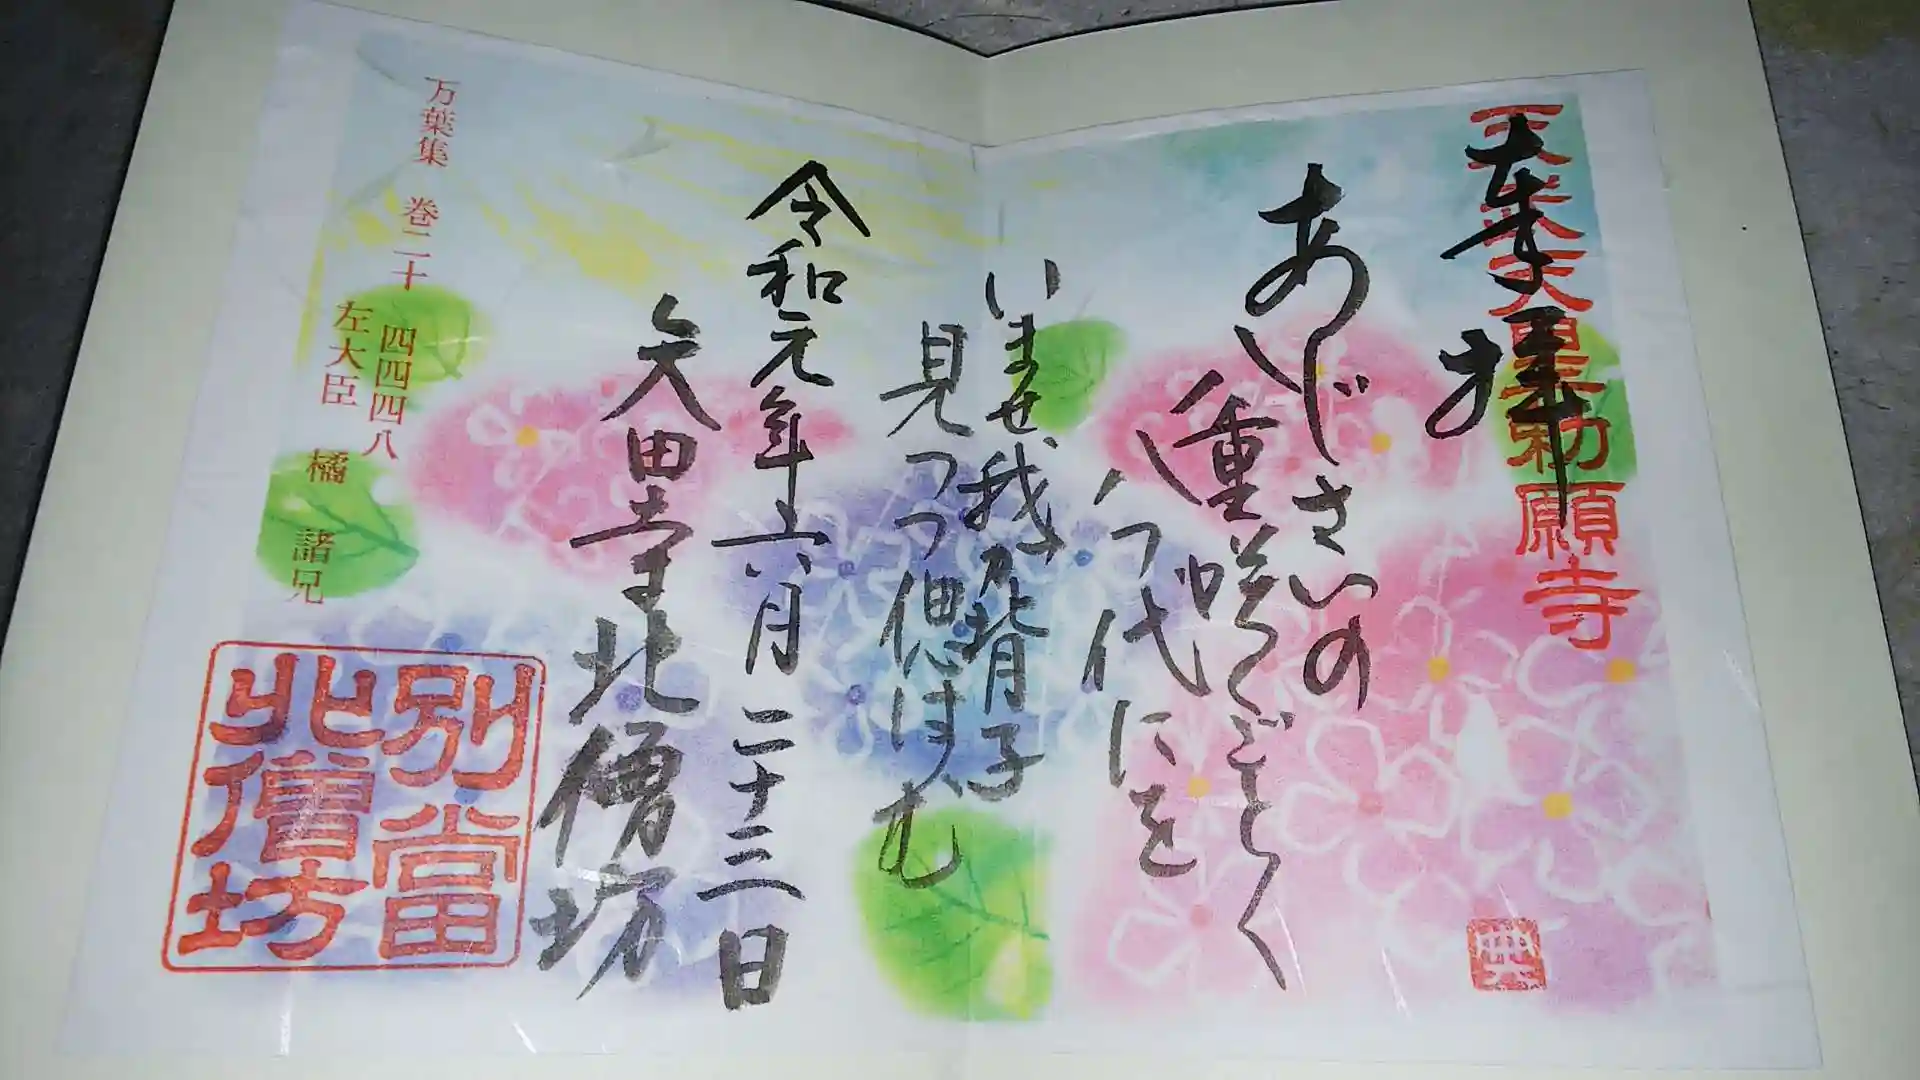 天武天皇勅願寺
奉拝
あじさいの
八重咲くごとく
八つ代にを
いませ我が背子
見つつ偲はむ
令和元年六月二十三日
矢田寺北僧坊
万葉集 巻二十 四四四八
左大臣 橘 諸兄
別當
北僧坊